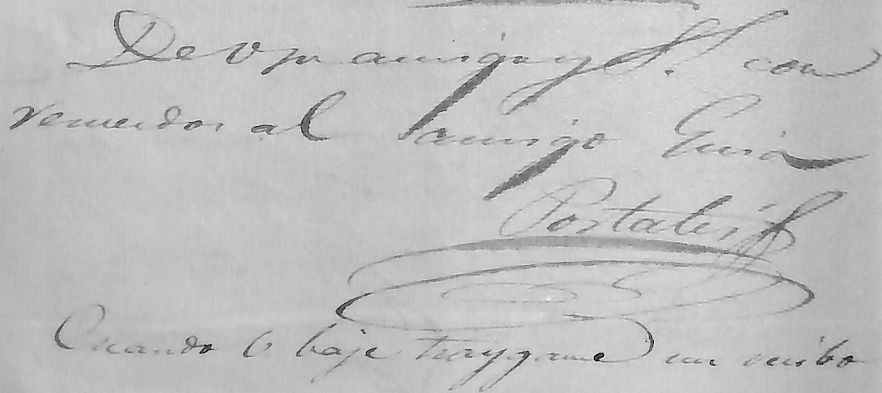 De V su amigo y S. S. con
recuerdos al amigo
Portales
Cuando V baje traygame un recibo